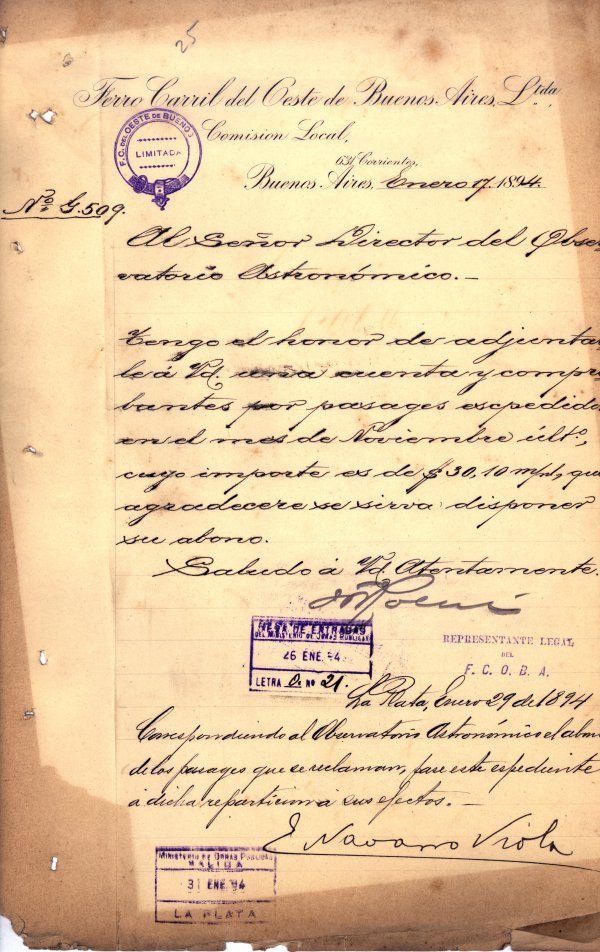 25
Ferro Carril del Oeste de Buenos Aires, Ltda.
Comision Local,
F.C. DEL OESTE DE BUENOS
LIMITADA
631 Corrientes,
Buenos Aires, Enero 17 1894.
No. G. 509.
Al Señor Director del Obser
vatorio Astronómico. —
Tengo el honor de adjuntar
le á Vd. una cuenta y compro
bantes por pasages espedidos
en el mes de Noviembre últo,
cuyo importe es de $ 30,10 m/n, que
agradecere se sirva disponer
su abono.
Saludo á Vd. Atentamente.
REPRESENTANTE LEGAL
DEL
F. C. O. B. A.
MESA DE ENTRADAS
DEL MINISTERIO DE OBRAS PUBLICAS
26 ENE. 94
LETRA O. No 21.
La Plata, Enero 29 de 1894
Correspondiendo al Observatorio Astronómico el abono
de los pasages que se reclaman, pase este espediente
á dicha reparticion á sus efectos. —
E Navarro Viola
MINISTERIO DE OBRAS PUBLICAS
SALIDA
31 ENE. 94
LA PLATA